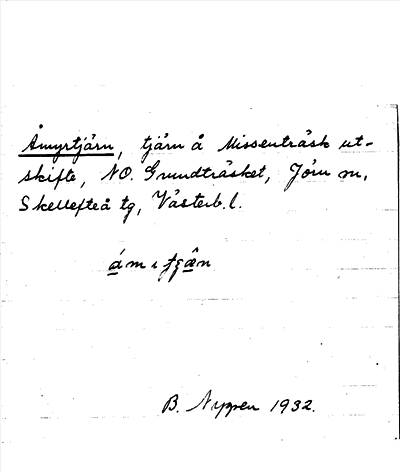 Åmyrtjärn, tjärn å Missenträsk ut-
skifte, NO. Grundträsket, Jörn sn,
Skellefteå tg, Västerb. l.
B. Nyppen 1932.